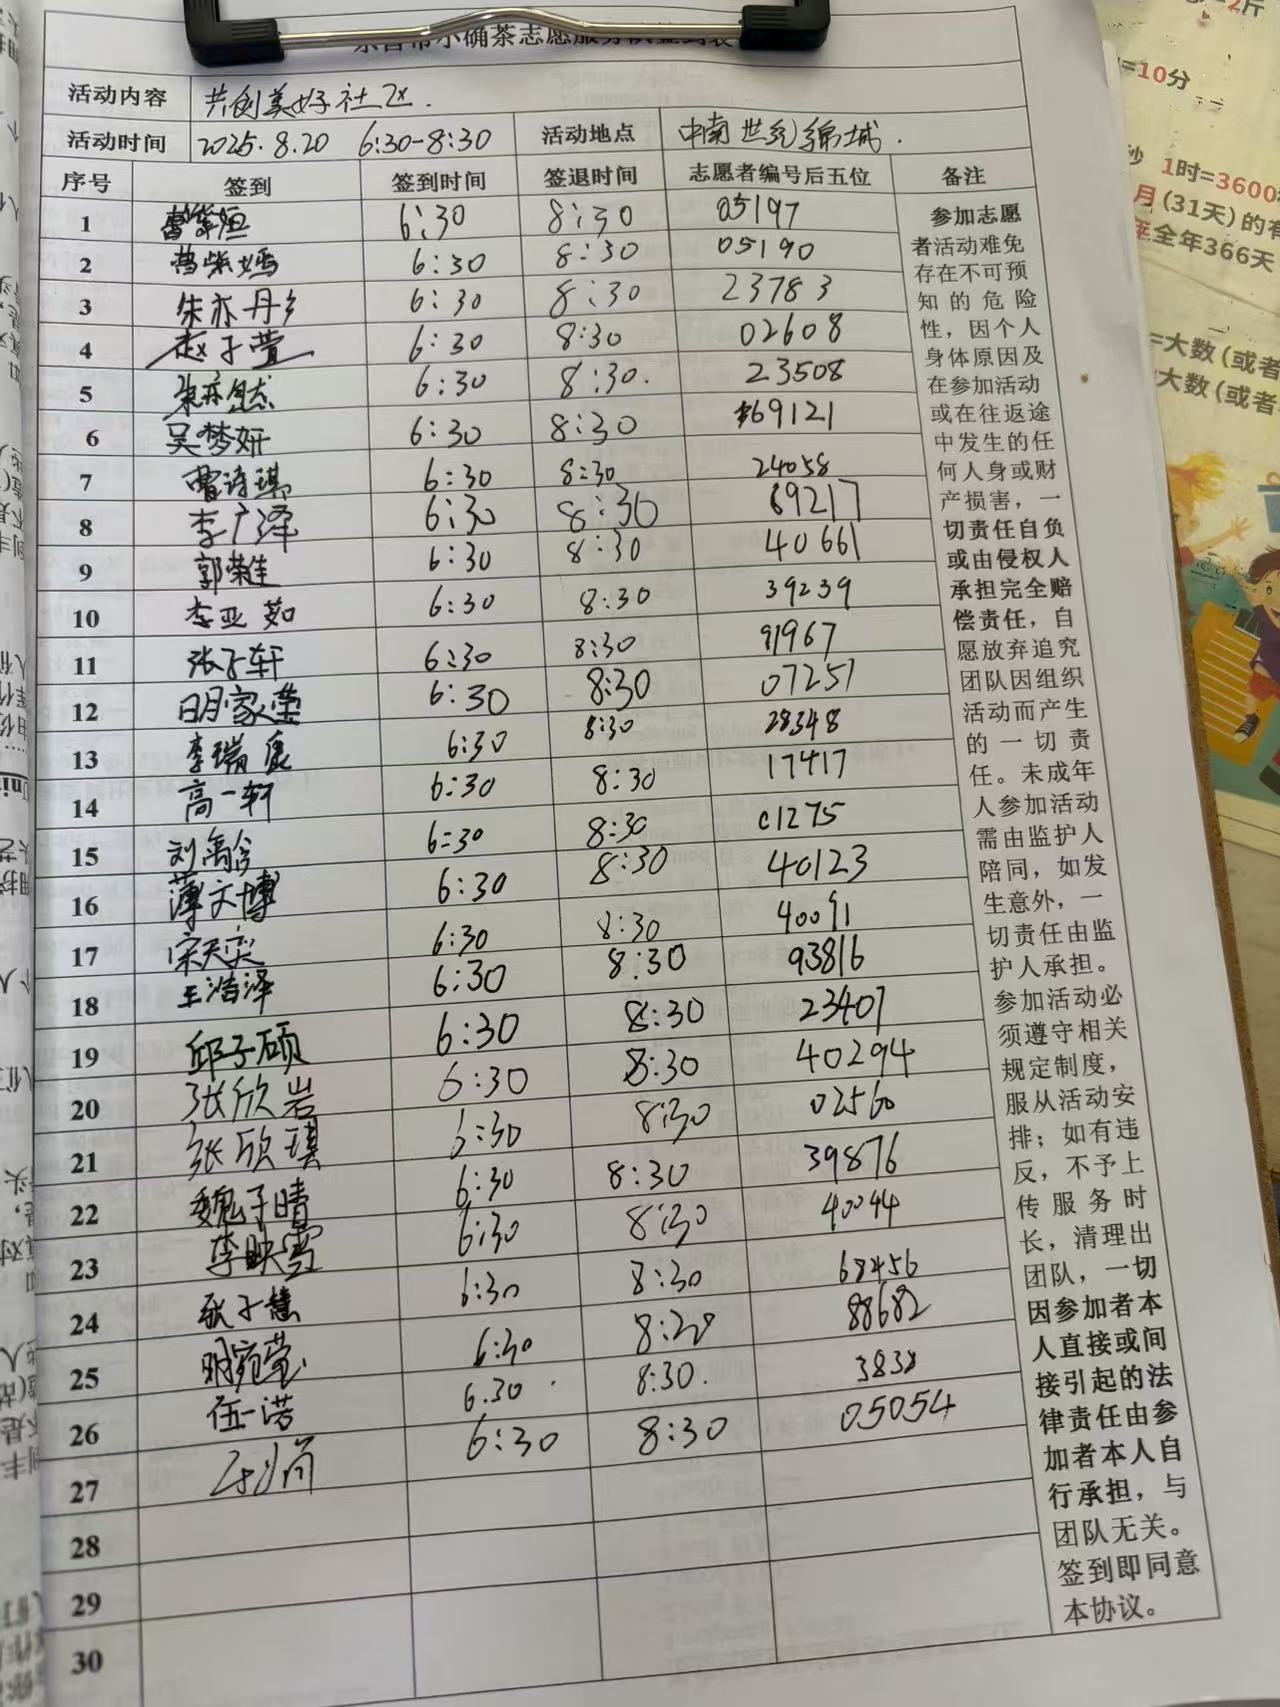 小确茶志愿服务队签到表
活动内容 共创美好社区.
活动时间 2025.8.20 6:30-8:30 活动地点 中南世纪锦城.
序号 签到 签到时间 签退时间 志愿者编号后五位 备注
1 6:30 8:30 05197
2 6:30 8:30 05190
3 朱亦丹 6:30 8:30 23783
4 赵子萱 6:30 8:30 02608
5 朱亦 6:30 8:30. 23508
6 吴梦妍 6:30 8:30 69121
7 曹诗琪 6:30 8:30 24058
8 李广泽 6:30 8:30 69217
9 郭荣佳 6:30 8:30 40661
10 李亚茹 6:30 8:30 39239
11 张子轩 6:30 8:30 91967
12 明家莹 6:30 8:30 07251
13 李瑞晨 6:30 8:30 28348
14 高一轩 6:30 8:30 17417
15 刘禹含 6:30 8:30 01275
16 薄文博 6:30 8:30 40123
17 宋天奕 6:30 8:30 40091
18 王浩泽 6:30 8:30 93816
19 邱子硕 6:30 8:30 23407
20 张欣岩 6:30 8:30 40294
21 张欣琪 6:30 8:30 02560
22 魏子晴 6:30 8:30 39876
23 李映雪 6:30 8:30 40044
24 耿子慧 6:30 8:30 68456
25 明宛莹 6:30 8:30 88682
26 伍一诺 6.30 8:30. 3838
27 6:30 8:30 05054
28
29
30
参加志愿
者活动难免
存在不可预
知的危险
性，因个人
身体原因及
在参加活动
或在往返途
中发生的任
何人身或财
产损害，一
切责任自负
或由侵权人
承担完全赔
偿责任，自
愿放弃追究
团队因组织
活动而产生
的一切责
任。未成年
人参加活动
需由监护人
陪同，如发
生意外，一
切责任由监
护人承担。
参加活动必
须遵守相关
规定制度，
服从活动安
排；如有违
反，不予上
传服务时
长，清理出
团队，一切
因参加者本
人直接或间
接引起的法
律责任由参
加者本人自
行承担，与
团队无关。
签到即同意
本协议。
=2斤
=10分
秒 1时=3600
月(31天)的有
年全年366天
=大数(或者
大数(或者